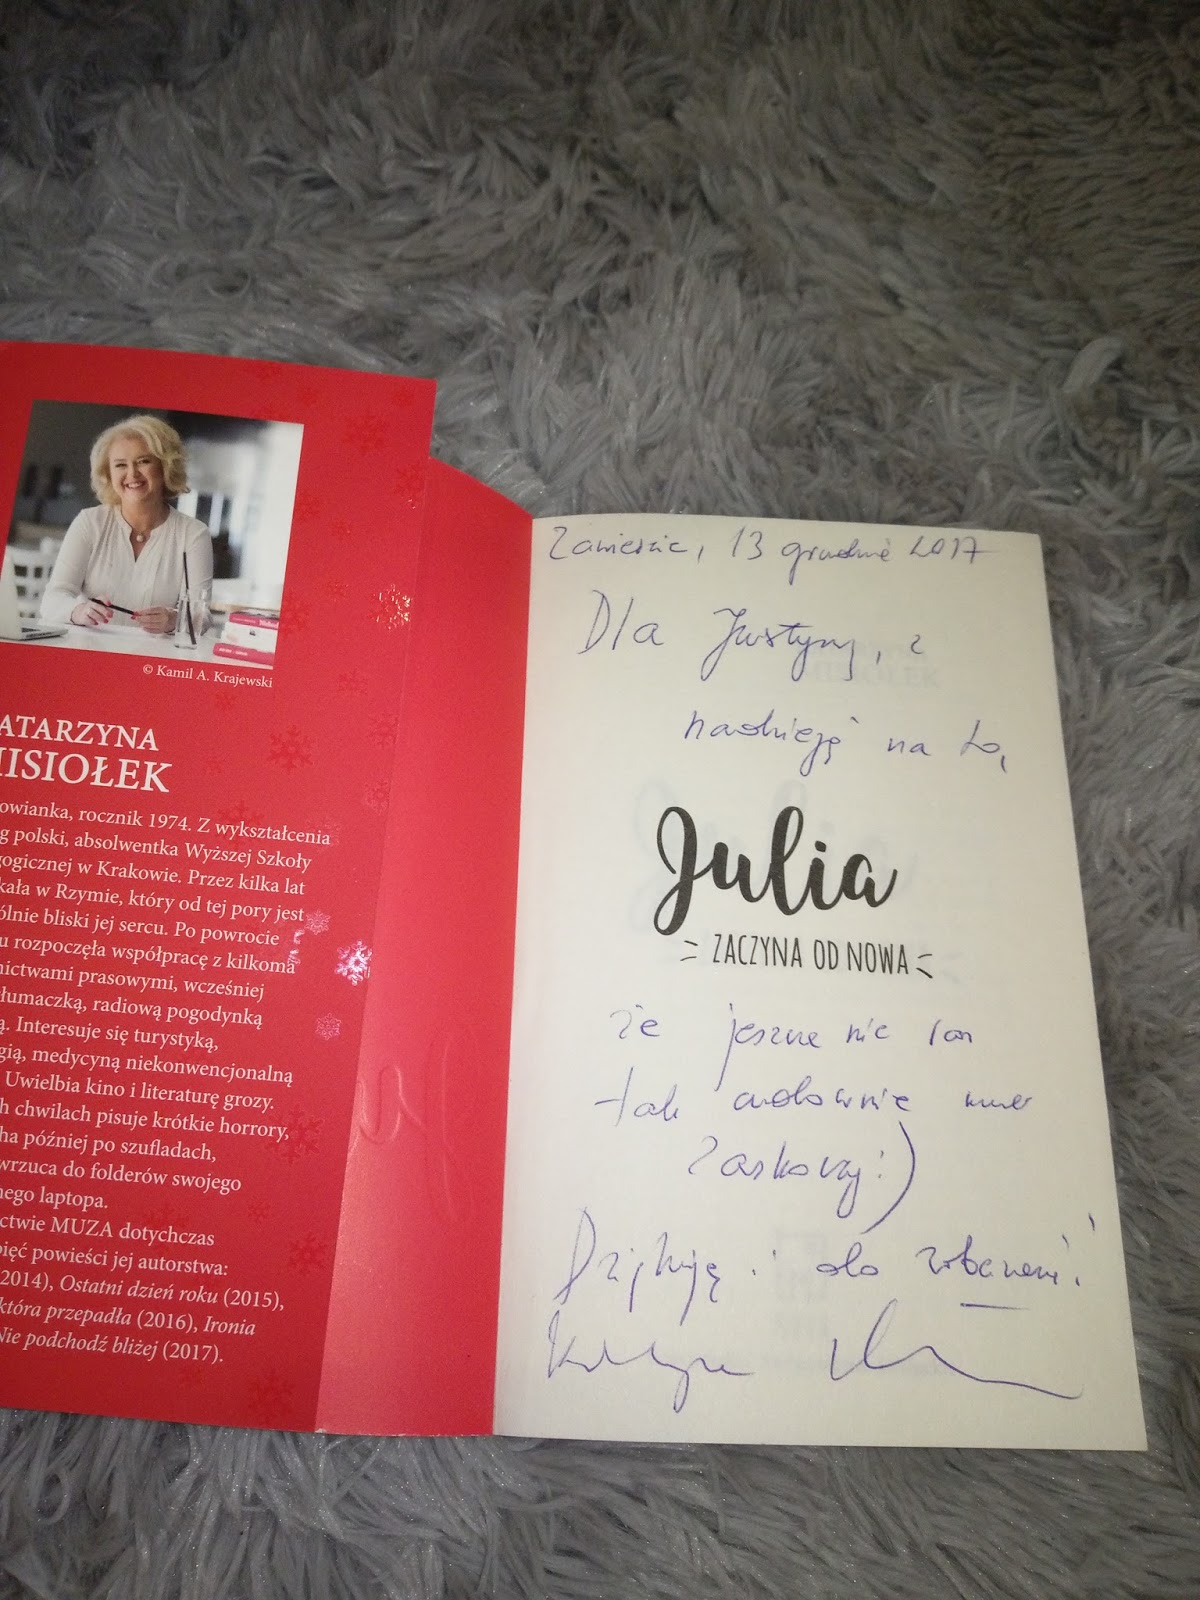 © Kamil A. Krajewski
ATARZYNA
ISIOŁEK
owianka, rocznik 1974. Z wykształcenia
g polski, absolwentka Wyższej Szkoły
gogicznej w Krakowie. Przez kilka lat
kała w Rzymie, który od tej pory jest
ólnie bliski jej sercu. Po powrocie
u rozpoczęła współpracę z kilkoma
nictwami prasowymi, wcześniej
łumaczką, radiową pogodynką
ą. Interesuje się turystyką,
gią, medycyną niekonwencjonalną
Uwielbia kino i literaturę grozy.
h chwilach pisuje krótkie horrory,
ha później po szufladach,
wrzuca do folderów swojego
nego laptopa.
ctwie MUZA dotychczas
pięć powieści jej autorstwa:
2014), Ostatni dzień roku (2015),
która przepadła (2016), Ironia
Nie podchodź bliżej (2017).
13 grudnia 2017
Dla Justyny, z
nadzieją na to,
Julia
ZACZYNA OD NOWA
że jeszcze nie raz
tak cudownie mnie
zaskoczy :)
Dziękuję i do zobaczenia!